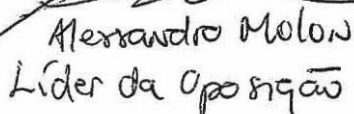 Alessandro Molon
Líder da Oposição